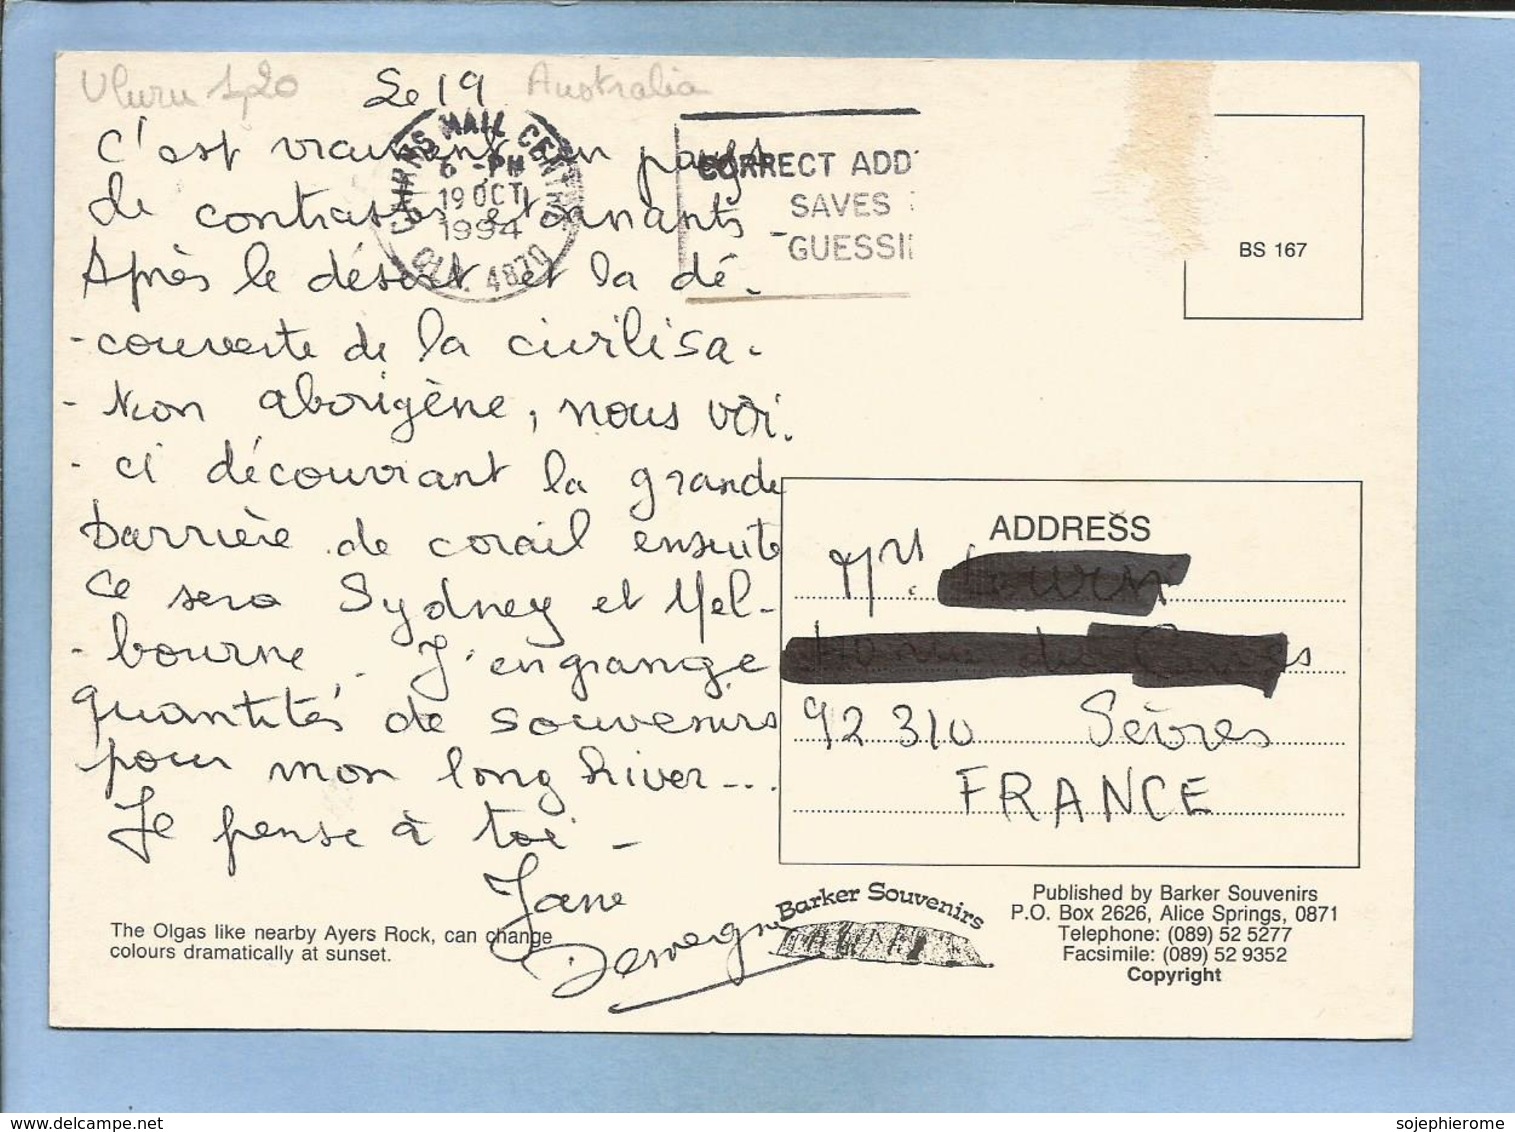 Uluru 1,20
Australia
Le 19
C'est vraiment un pays
de contrastes étonnants -
Après le désert et la dé-
-couverte de la civilisa-
-tion aborigène, nous voi-
-ci découvrant la grande
barrière de corail ensuite
ce sera Sydney et Mel-
-bourne. J'engrange
quantités de souvenirs
pour mon long hiver...
Je pense à toi -
Jane
CAIRNS MAIL CENTRE
6 - PM
19 OCT
1994
QLD. 4870
CORRECT ADD
SAVES
GUESSI
BS 167
ADDRESS
92310 Sèvres
FRANCE
The Olgas like nearby Ayers Rock, can change
colours dramatically at sunset.
Barker Souvenirs
Published by Barker Souvenirs
P.O. Box 2626, Alice Springs, 0871
Telephone: (089) 52 5277
Facsimile: (089) 52 9352
Copyright
sojephierome